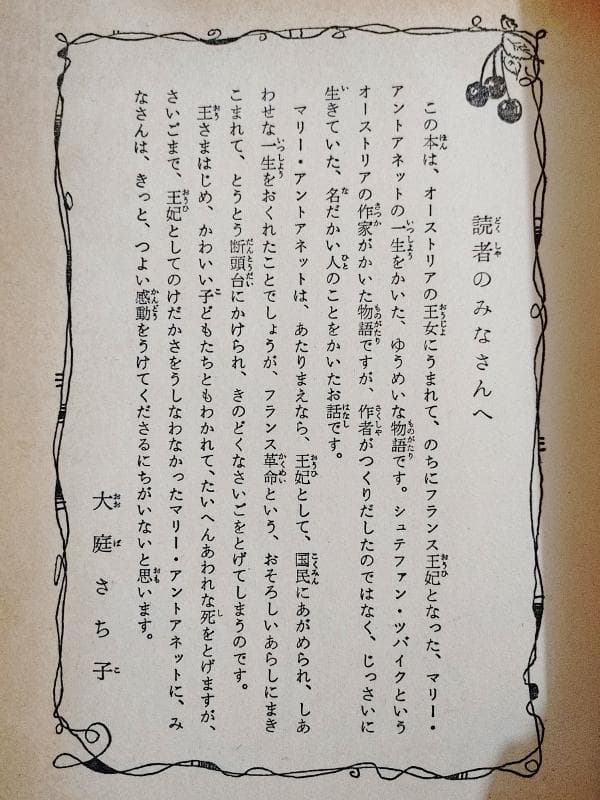 読者のみなさんへ
この本は、オーストリアの王女にうまれて、のちにフランス王妃となった、マリー・
アントアネットの一生をかいた、ゆうめいな物語です。シュテファン・ツバイクという
オーストリアの作家がかいた物語ですが、作者がつくりだしたのではなく、じっさいに
生きていた、名だかい人のことをかいたお話です。
マリー・アントアネットは、あたりまえなら、王妃として、国民にあがめられ、しあ
わせな一生をおくれたことでしょうが、フランス革命という、おそろしいあらしにまき
こまれて、とうとう断頭台にかけられ、きのどくなさいごをとげてしまうのです。
王さまはじめ、かわいい子どもたちともわかれて、たいへんあわれな死をとげますが、
さいごまで、王妃としてのけだかさをうしなわなかったマリー・アントアネットに、み
なさんは、きっと、つよい感動をうけてくださるにちがいないと思います。
大庭さち子